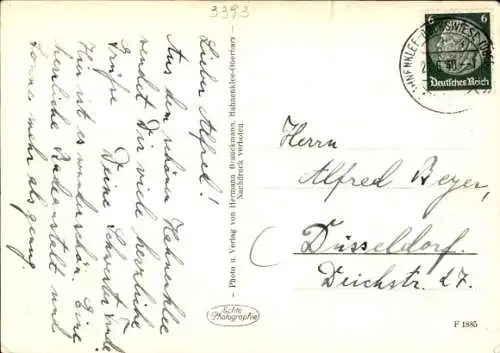 3393
Lieber Alfred!
Aus dem schönen Hahnenklee
sendet Dir viele herzliche
Grüße Deine Schwester
Hier ist es wunderschön. Eine
herrliche Badeanstalt und
Sonne mehr als genug.
– Photo u. Verlag von Hermann Brauckmann, Hahnenklee-Oberharz –
Nachdruck verboten
Echte
Photographie
6 6
Deutsches Reich
Herrn
Alfred Beyer,
Düsseldorf.
Deichstr. 27.
F 1885